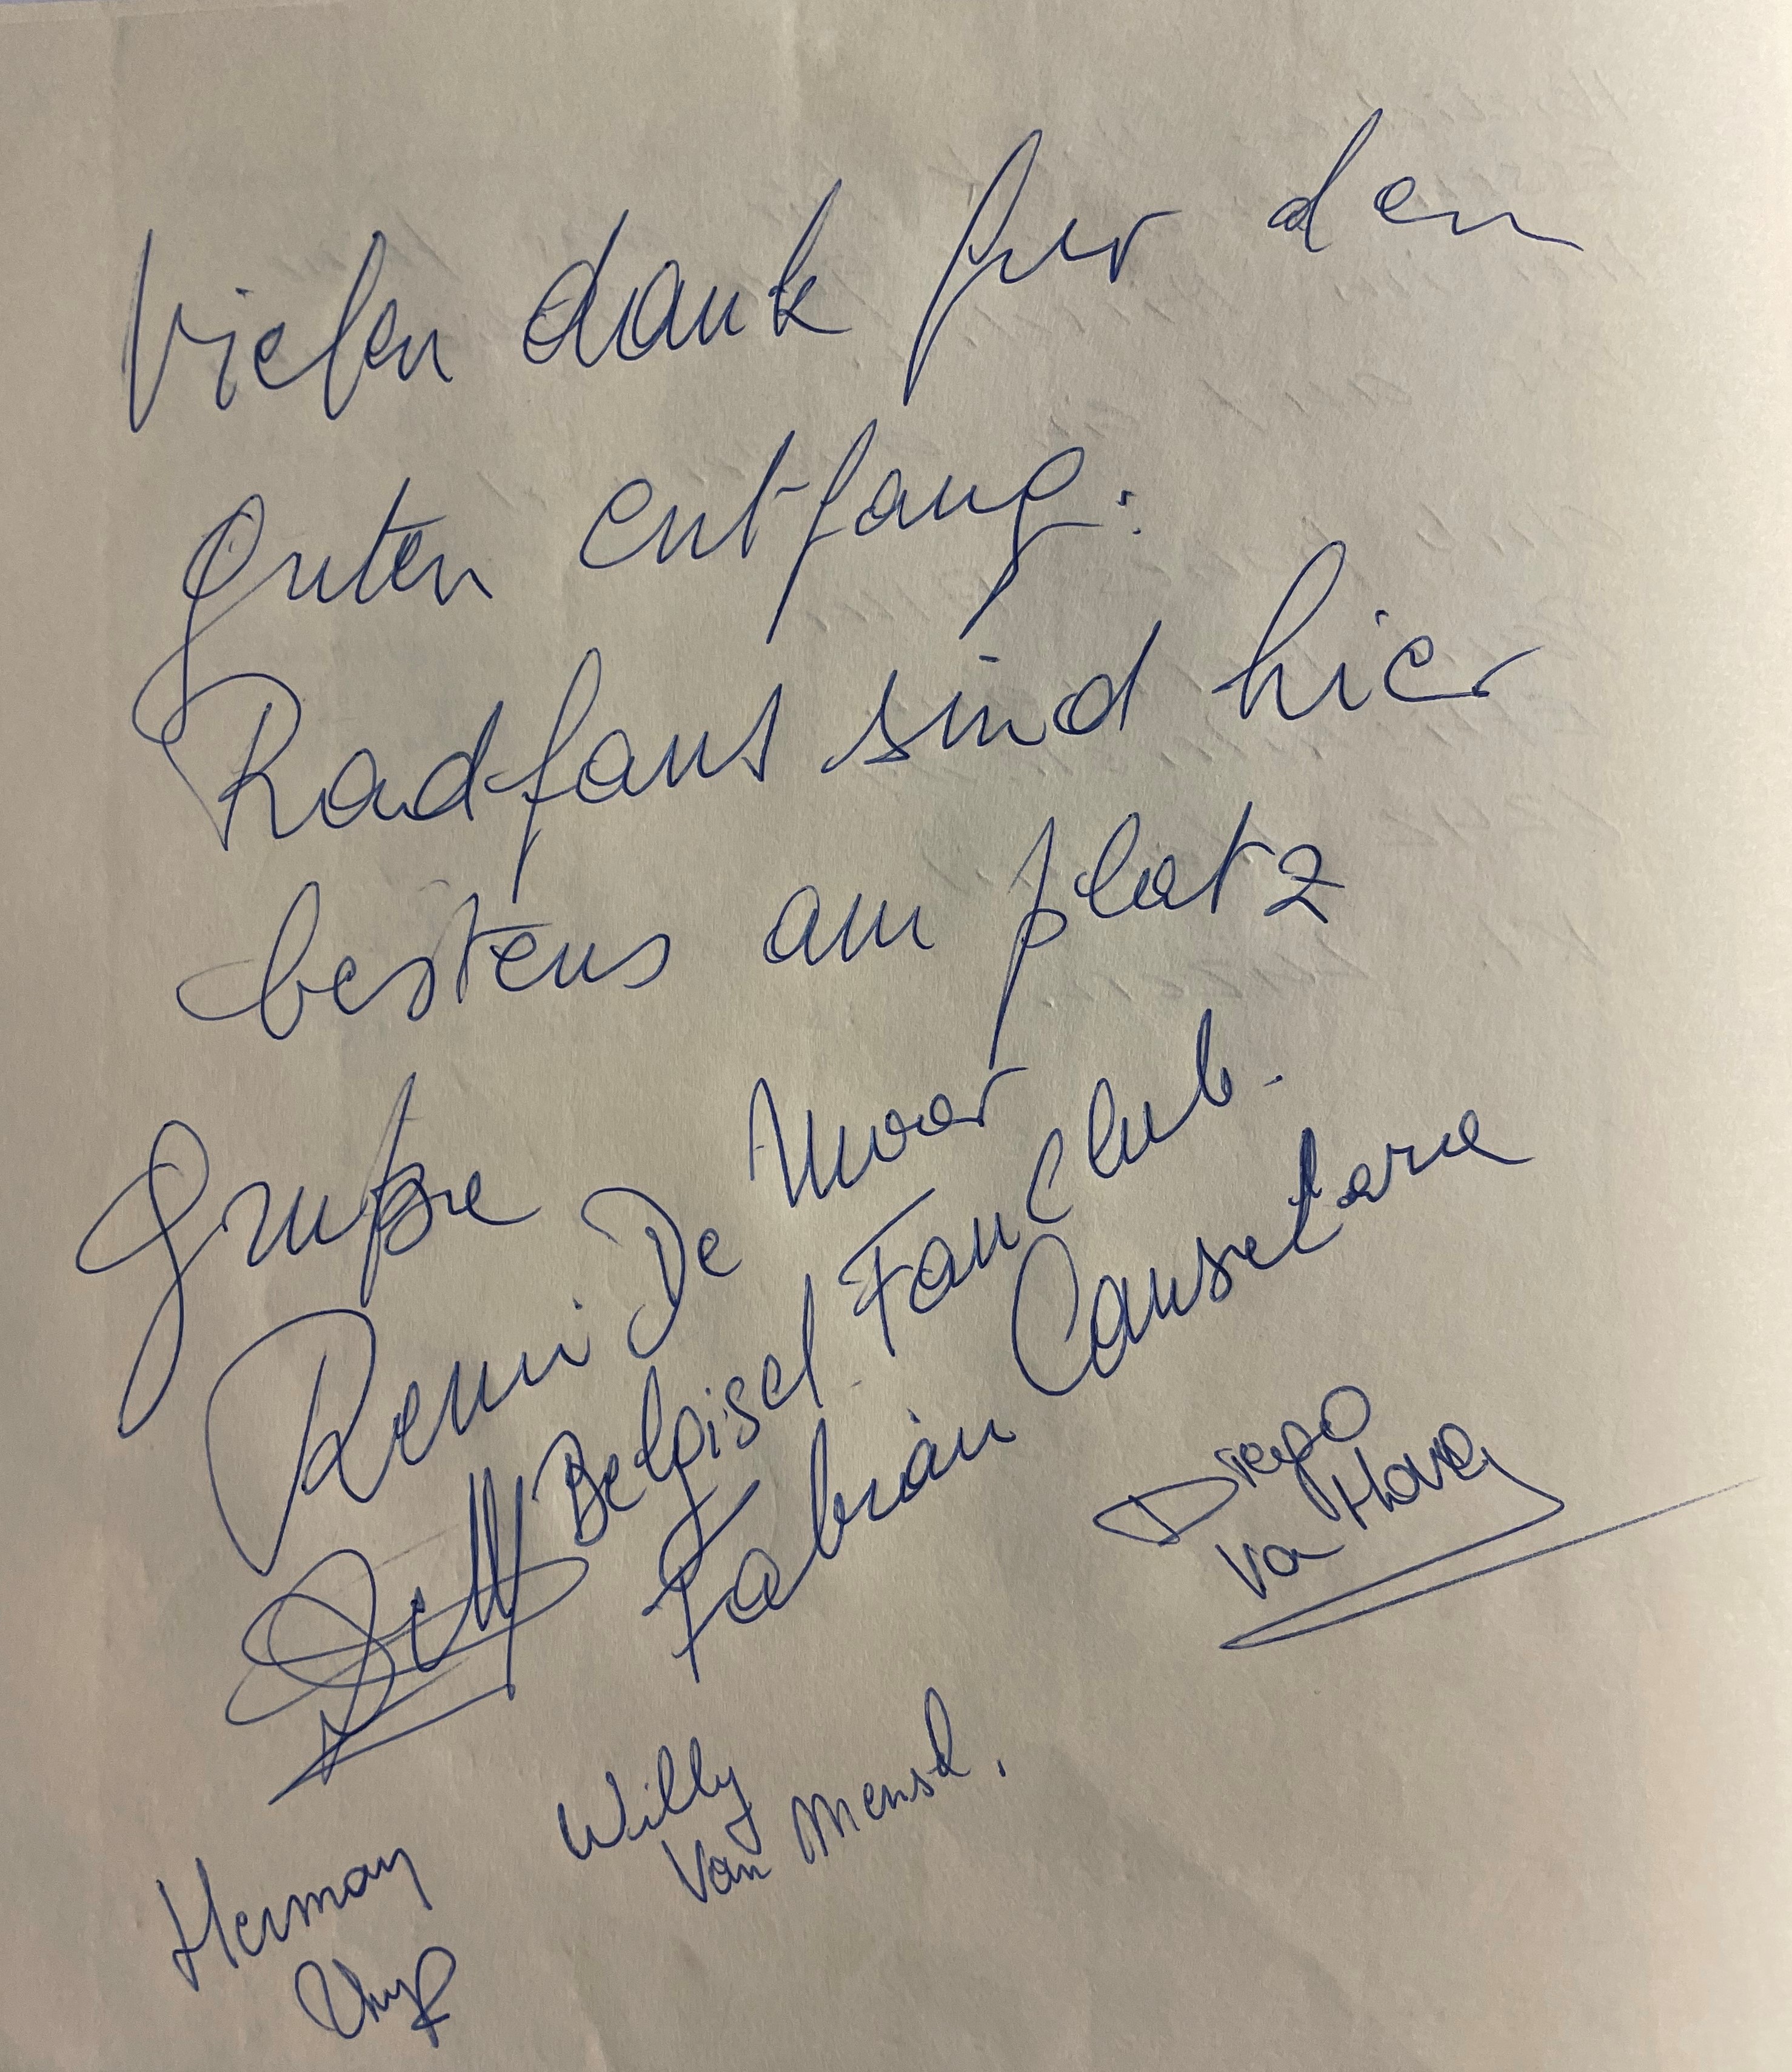 Vielen dank fur den
guten entfang.
Radfans sind hier
bestens am platz
Remi De Moor
Belgisch Fan Club.
Fabian Canselara
Diego
Van Hov
Willy
Van Mensel.
Herman